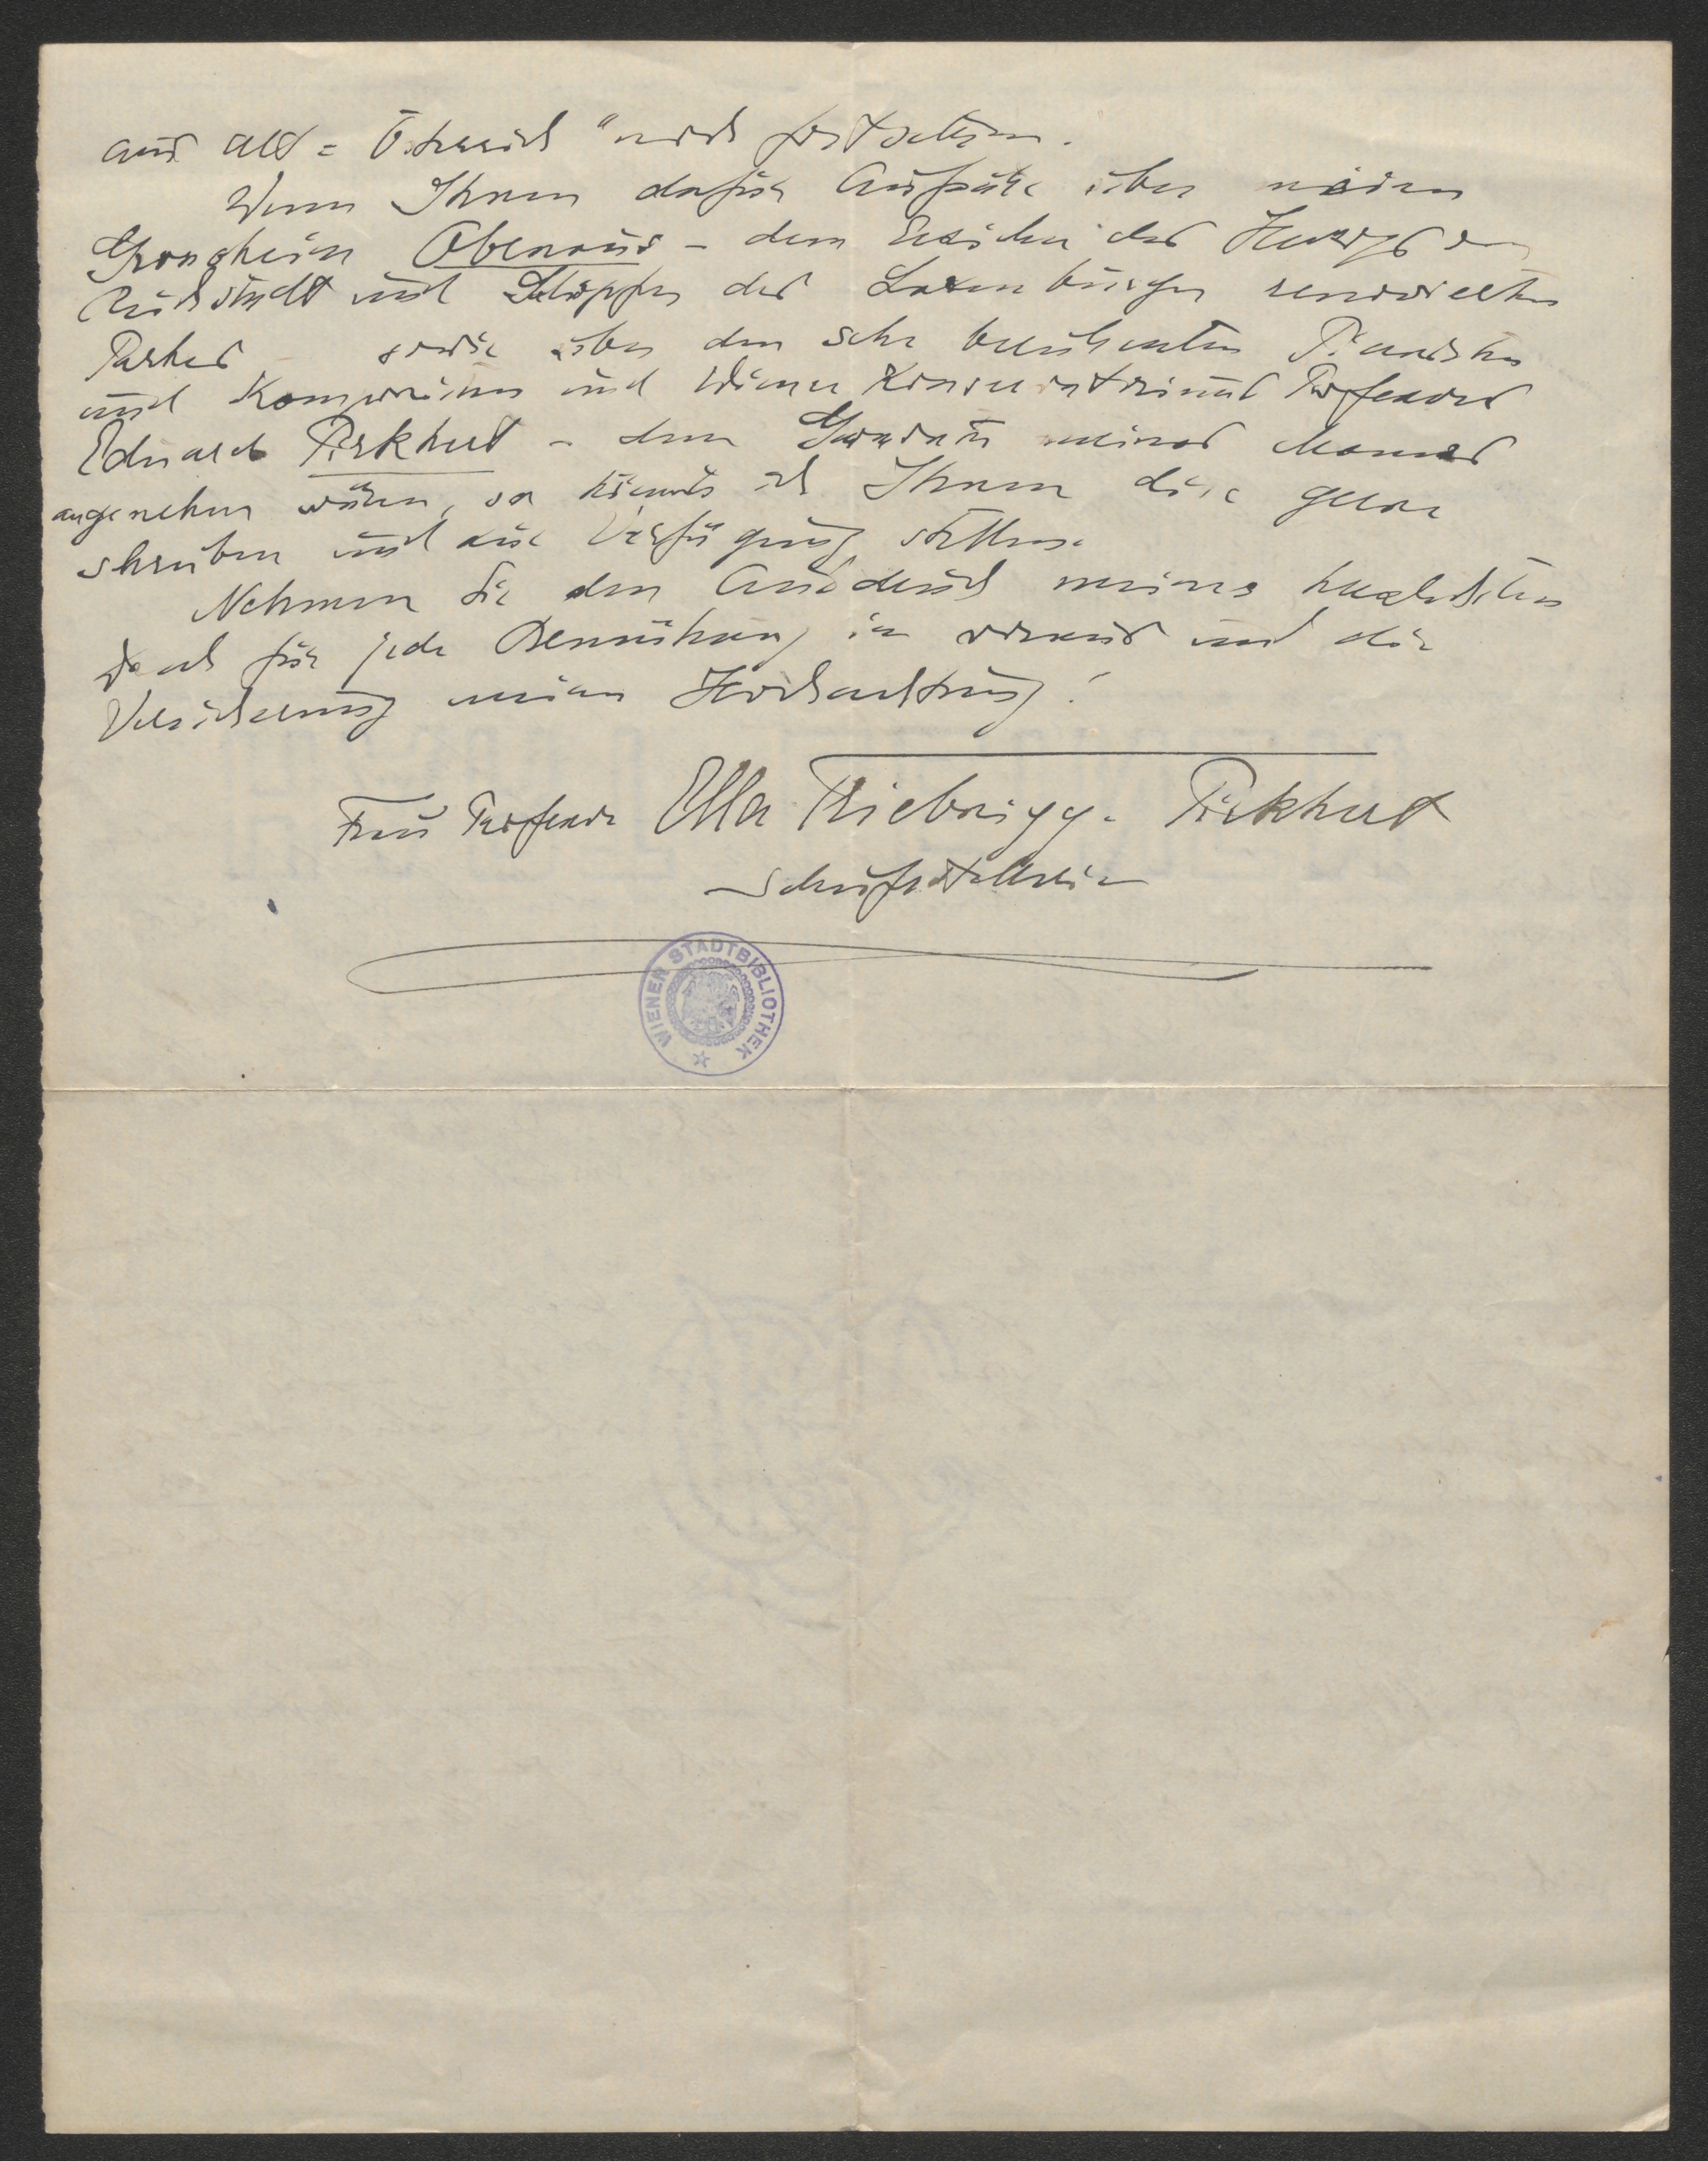 aus Alt = Österreich" noch fortsetzen.
Wenn Ihnen dafür Aufsätze über meinen
Obenaus - dem Erzieher des Herzogs von
Reichstadt und Schöpfer des Laxenburger
Parkes sowie über den sehr berühmten Pianisten
und Komponisten und Wiener Konservatoriums Professors
Eduard Pirkhert - dem meines Mannes
angenehm wären, so könnte ich Ihnen diese gerne
schreiben und zur Verfügung stellen.
Nehmen Sie den Ausdruck meines herzlichsten
Dank für jede Bemühung im voraus und die
Versicherung meiner Hochachtung!
Frau Professor Ella Triebnigg-Pirkhert
Schriftstellerin
WIENER STADTBIBLIOTHEK